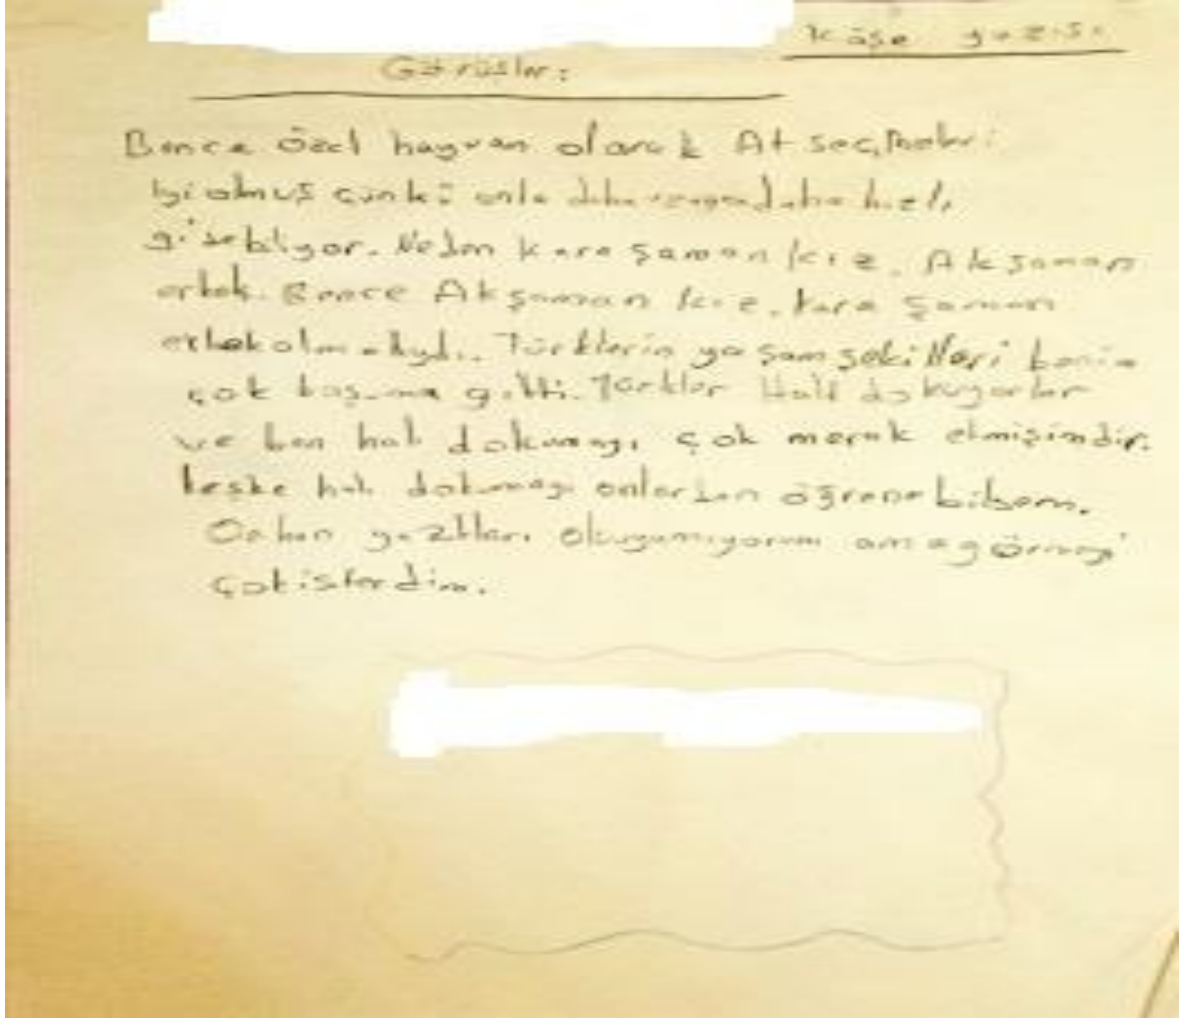 Köşe yazısı
Görüşler:
Bence özel hayvan olarak At seçmeleri
iyi olmuş çünkü onla daha daha hızlı
gidebiliyor. Neden Kara Şaman kız, Akşaman
erkek. Bence Akşaman kız, Kara Şaman
erkek olmalıydı. Türklerin yaşam şekilleri benim
çok hoşuma gitti. Türkler Halı dokuyorlar
ve ben halı dokumayı çok merak etmişimdir.
keşke halı dokumayı onlardan öğrenebilsem.
Orhun yazıtları okuyamıyorum ama görmeyi
çok isterdim.